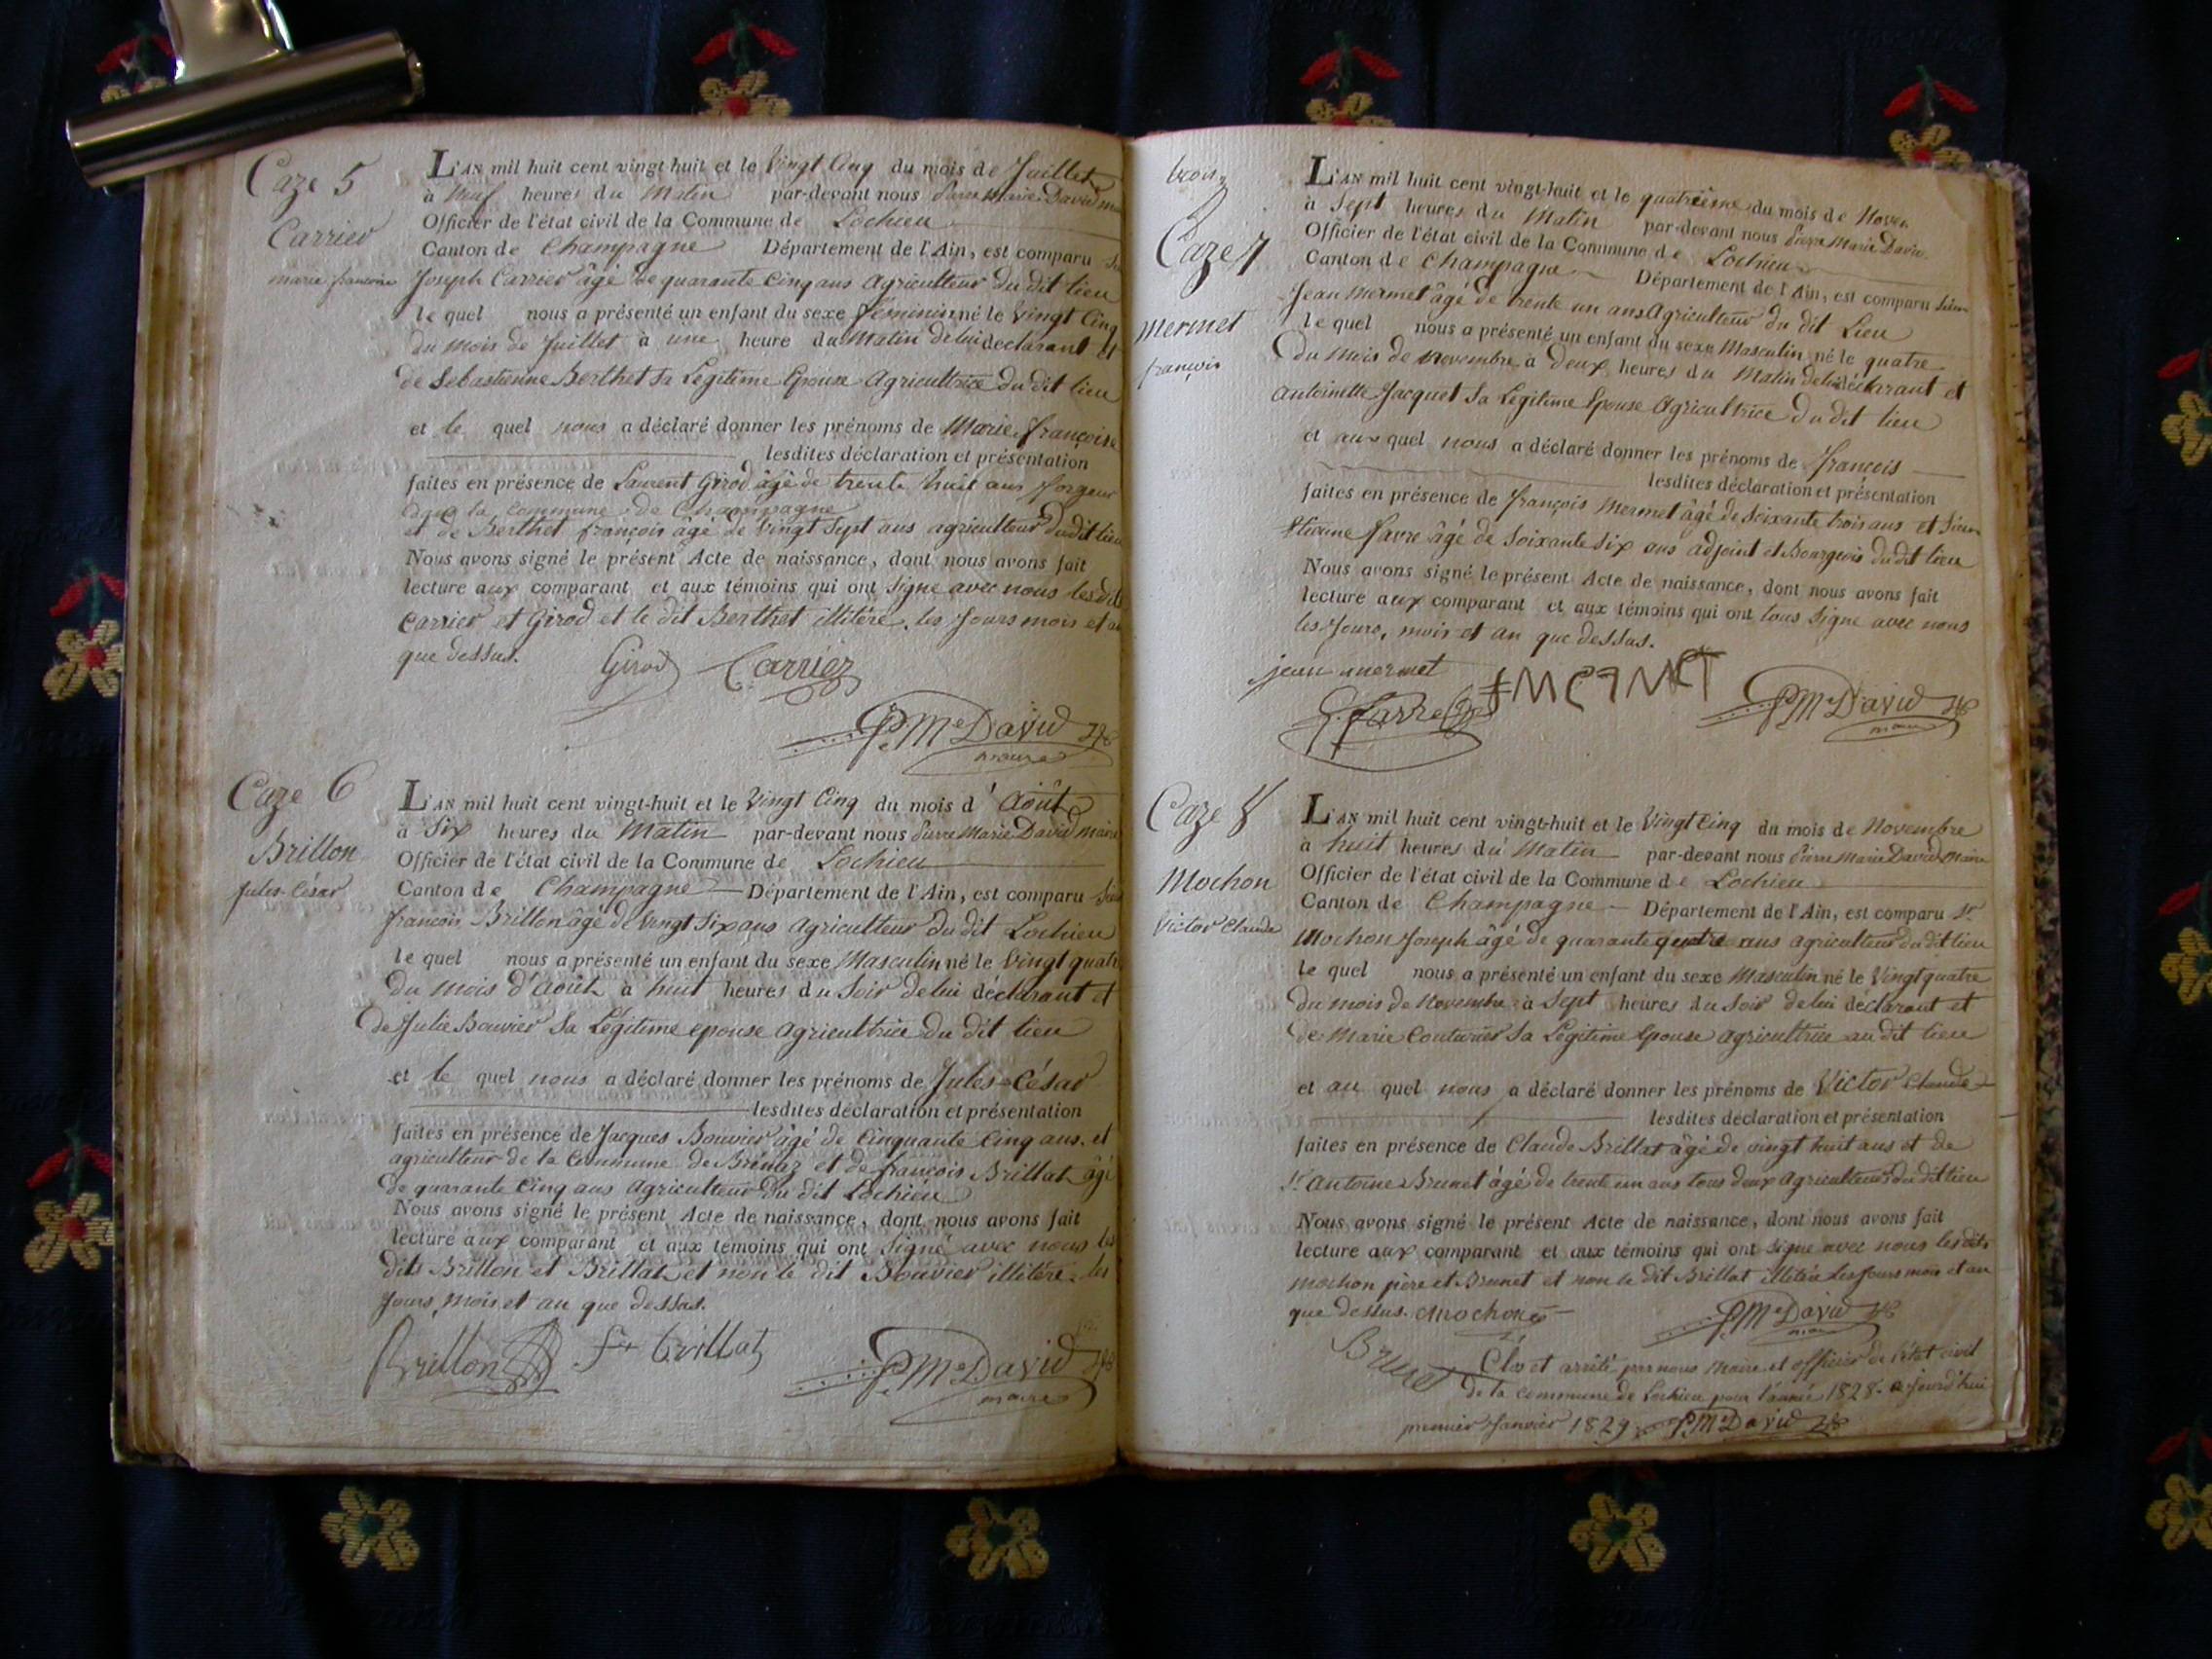 Caze 5
Carrier
marie francoise
L'AN mil huit cent vingt-huit et le Vingt Cinq du mois de Juillet
à Neuf heures du Matin par-devant nous Pierre Marie David
Officier de l'état civil de la Commune de Lochieu
Canton de Champagne Département de l'Ain, est comparu
Joseph Carrier âgé de quarante Cinq ans Agriculteur du dit lieu
le quel nous a présenté un enfant du sexe féminin né le Vingt Cinq
du mois de Juillet à une heure du Matin de lui déclarant et
de Sebastienne Berthet Sa Legitime Epouse Agricultrice du dit lieu
et le quel nous a déclaré donner les prénoms de Marie françoise
lesdites déclaration et présentation
faites en présence de Laurent Girod âgé de trente huit ans forgeur
dans la commune de Champagne
et de Berthet françois âgé de Vingt Sept ans agriculteur du dit lieu
Nous avons signé le présent Acte de naissance, dont nous avons fait
lecture aux comparant et aux témoins qui ont Signé avec nous les dits
Carrier et Girod et le dit Berthet illitéré, les Jours mois et an
que dessus.
Girod Carrier
P. Me David
maire
Caze 6
Brillon
Jules César
L'AN mil huit cent vingt-huit et le Vingt Cinq du mois d'Août
à Six heures du Matin par-devant nous Pierre Marie David maire
Officier de l'état civil de la Commune de Lochieu
Canton de Champagne Département de l'Ain, est comparu
françois Brillon âgé de Vingt Six ans Agriculteur du dit Lochieu
le quel nous a présenté un enfant du sexe Masculin né le Vingt quatre
du mois d'Août à huit heures du Soir de lui déclarant et
de Julie Bouvier Sa Légitime epouse Agricultrice du dit lieu
et le quel nous a déclaré donner les prénoms de Jules-César
lesdites déclaration et présentation
faites en présence de Jacques Bouvier âgé de Cinquante Cinq ans. et
agriculteur de la Commune de Brénaz et de françois Brillat âgé
de quarante Cinq ans Agriculteur du dit Lochieu
Nous avons signé le présent Acte de naissance, dont nous avons fait
lecture aux comparant et aux témoins qui ont Signé avec nous les
dits Brillon et Brillat et non le dit Bouvier illitéré. les
Jours, Mois et an que dessus.
Brillon fs Brillat
P. Me David
maire
trois
Caze 7
Mermet
françois
L'AN mil huit cent vingt-huit et le quatrième du mois de Novem
à Sept heures du Matin par-devant nous Pierre Marie David
Officier de l'état civil de la Commune de Lochieu
Canton de Champagne Département de l'Ain, est comparu Sieur
Jean Mermet âgé de trente un ans Agriculteur du dit Lieu
le quel nous a présenté un enfant du sexe Masculin né le quatre
du mois de Novembre à Deux heures du Matin de lui déclarant et
Antoinette Jacquet Sa Legitime Epouse Agricultrice du dit lieu
et aux quel nous a déclaré donner les prénoms de françois
lesdites déclaration et présentation
faites en présence de françois Mermet âgé de Soixante trois ans et Sieur
Etienne favre âgé de Soixante Six ans adjoint et Bourgeois du dit lieu
Nous avons signé le présent Acte de naissance, dont nous avons fait
lecture aux comparant et aux témoins qui ont tous Signé avec nous
les Jours, mois et an que dessus.
jean mermet
P. Me David
maire
Caze 8
Mochon
Victor Claude
L'AN mil huit cent vingt-huit et le Vingt Cinq du mois de Novembre
à huit heures du Matin par-devant nous Pierre Marie David Maire
Officier de l'état civil de la Commune de Lochieu
Canton de Champagne Département de l'Ain, est comparu Sr
Mochon Joseph âgé de quarante quatre ans agriculteur du dit lieu
le quel nous a présenté un enfant du sexe Masculin né le Vingt quatre
du mois de Novembre à Sept heures du Soir de lui déclarant et
de Marie Couturier Sa Légitime Epouse agricultrice au dit lieu
et au quel nous a déclaré donner les prénoms de Victor Claude
lesdites déclaration et présentation
faites en présence de Claude Brillat âgé de vingt huit ans et de
Sr Antoine Brunet âgé de trente un ans tous deux Agriculteurs du dit lieu
Nous avons signé le présent Acte de naissance, dont nous avons fait
lecture aux comparant et aux témoins qui ont Signé avec nous les dits
Mochon père et Brunet et non le dit Brillat illitéré les Jours mois et an
que dessus. Mochon
P. Me David
maire
Brunet
Clos et arrêté par nous Maire et officier de l'état civil
de la commune de Lochieu pour l'année 1828. aujourd'hui
premier Janvier 1829. P. M. David